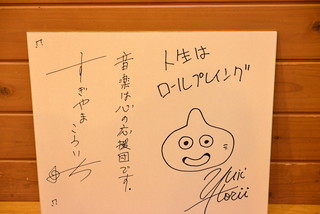 人生は
ロールプレイング
Yuji
Horii
音楽は心の応援団です.
すぎやまこういち